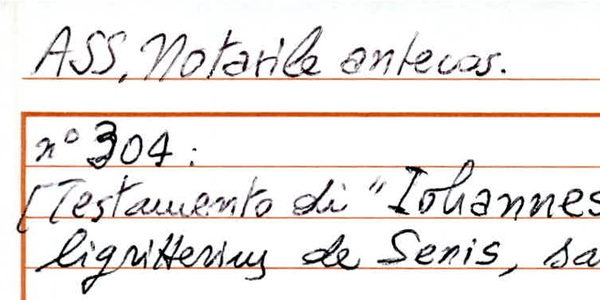 ASS, Notarile antecos.
n° 304:
[Testamento di "Iohannes
ligritterius de Senis, sa